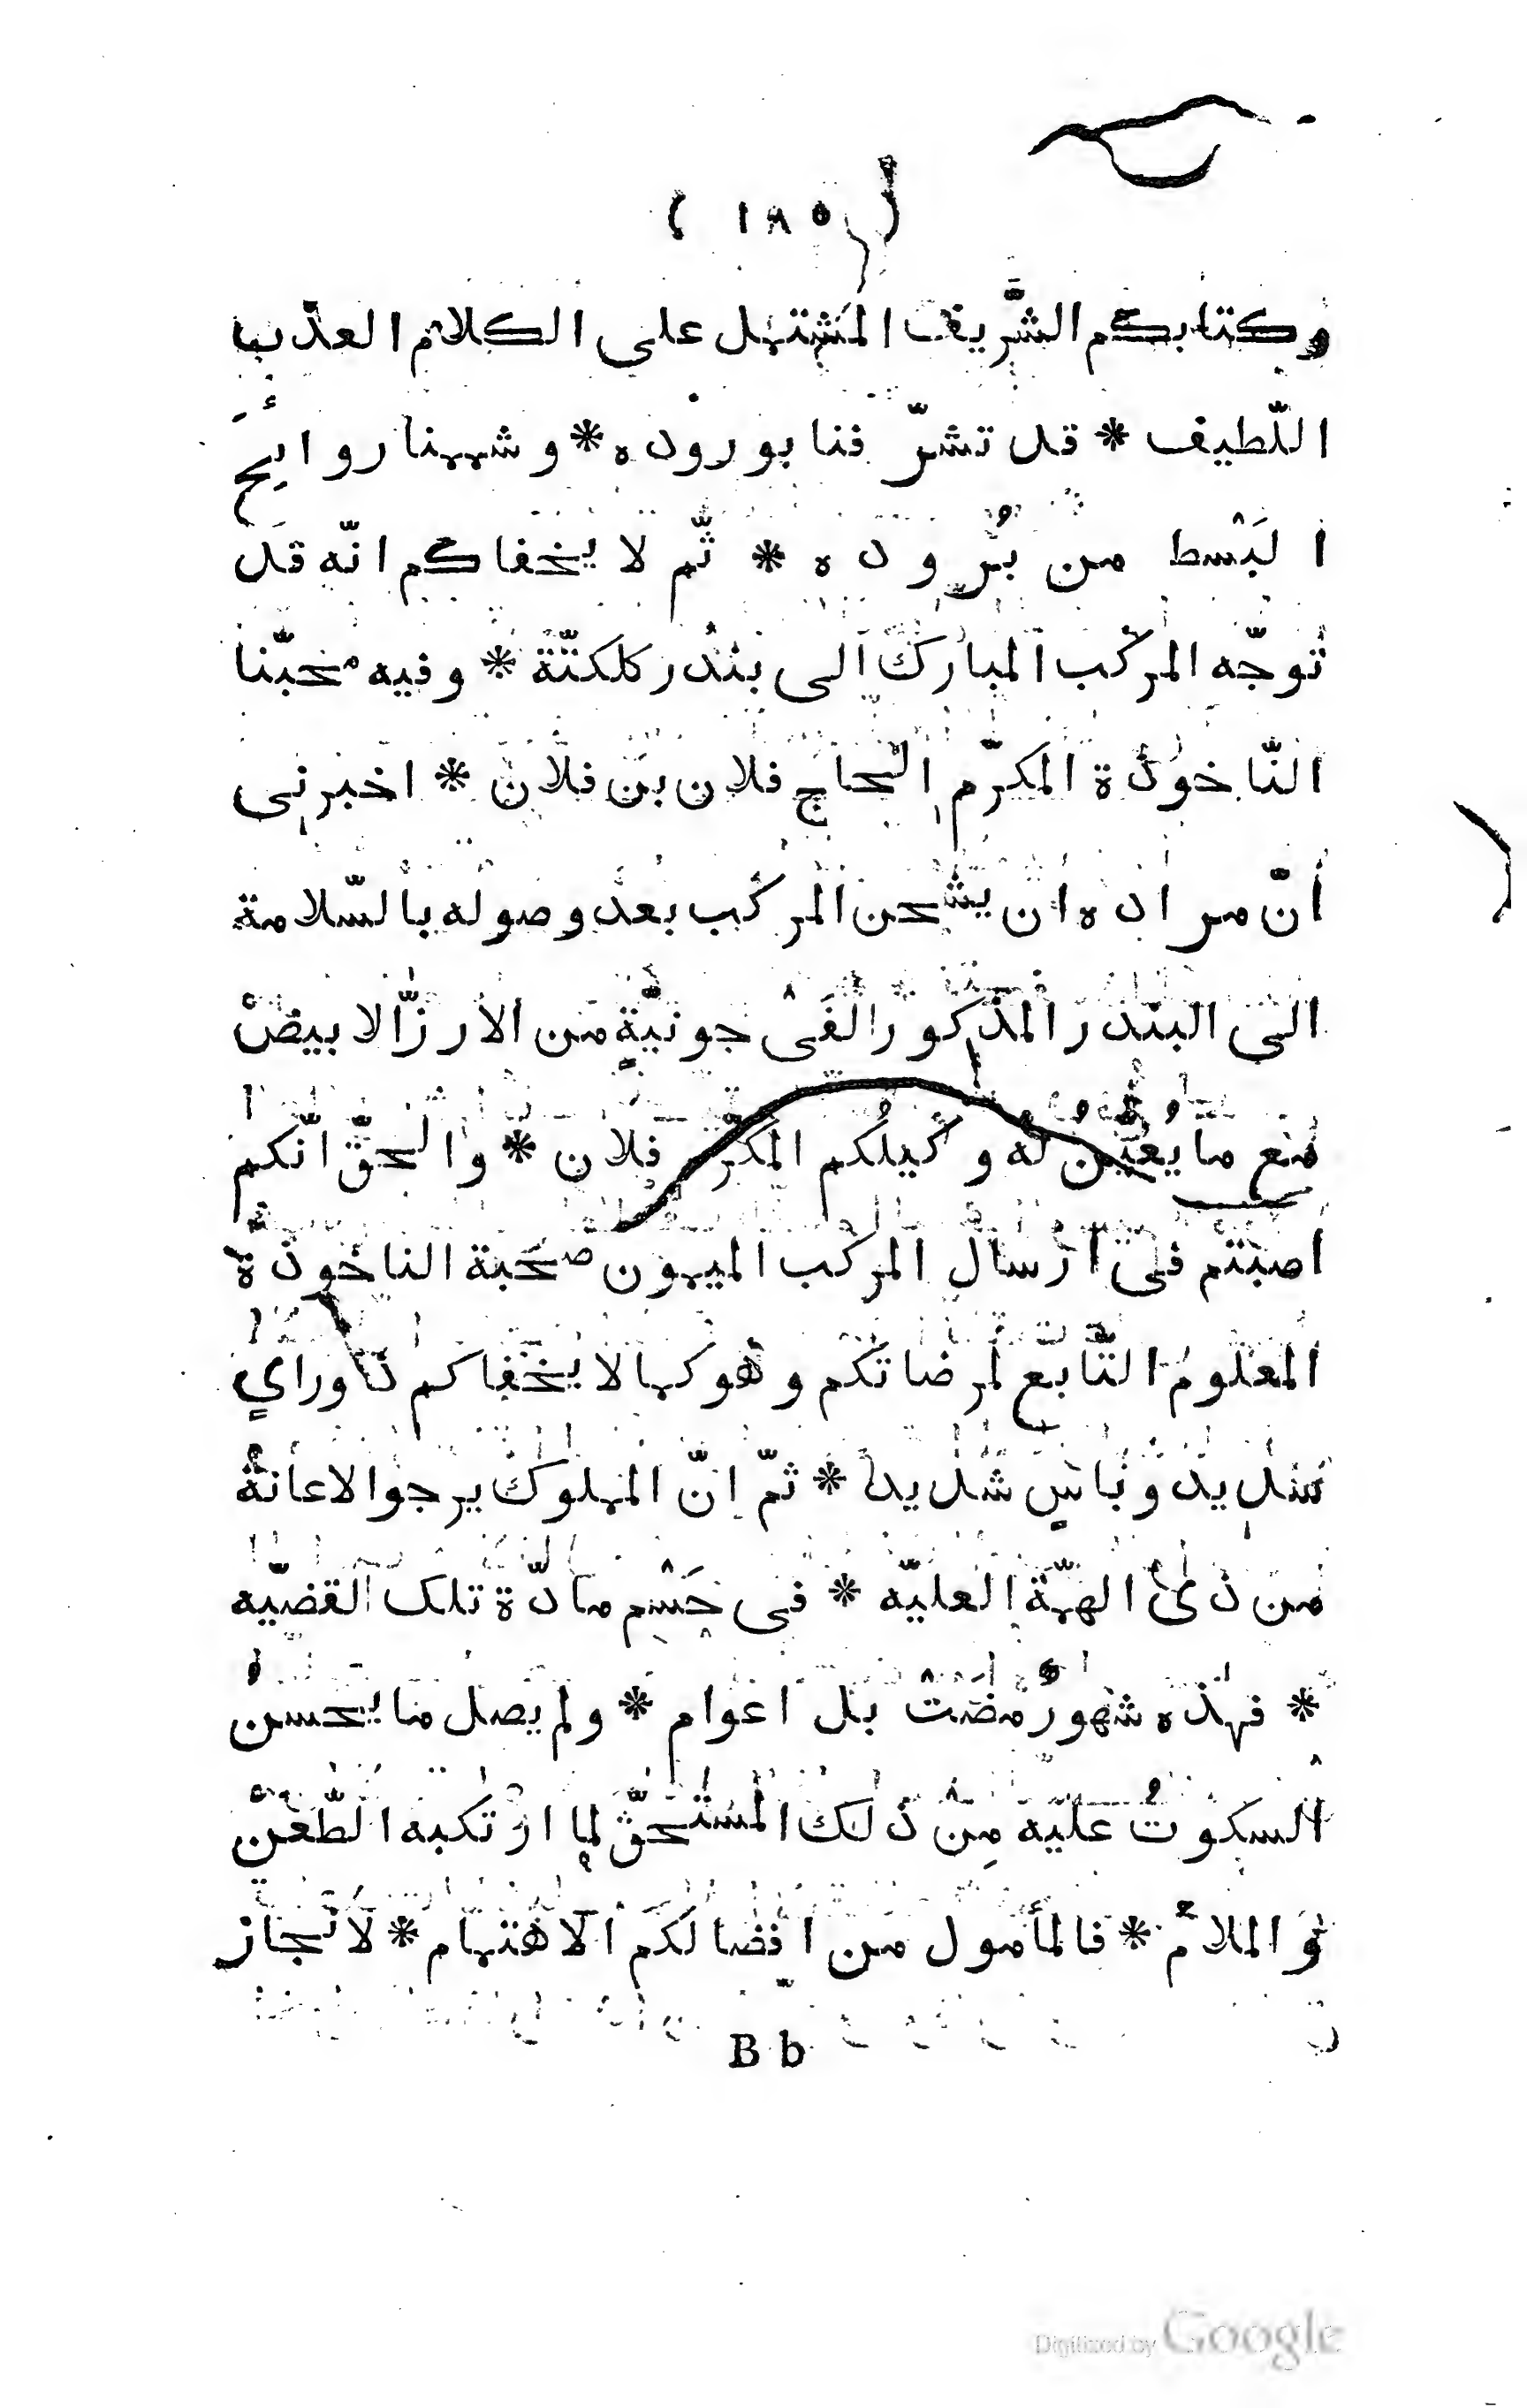 ( ١٨٥ )
وكتابكم الشّريف المشتمل على الكلام العذب
اللّطيف * قد تشرّفنا بوروده * وشممنا روائِحَ
البَسْط من بُرُوده * ثّم لا يخفاكم انّه قد
توجّه المركب المبارك الى بندر كلكتّة * وفيه محبّنا
النّاخوذة المكرّم الحاج فلان بن فلان * اخبرني
انّ مراده ان يشحن المركب بعد وصوله بالسّلامة
الى البندر المذكور الفَىْ جونيّةٍ من الارزّ الابيض
مع ما يعيّن له وكيلُكم المكرّم فلان * والحقّ انّكم
اصبتم فى ارسال المركب الميمون صحبة الناخوذة
المعلوم التّابع لمرضاتكم وهو كما لا يخفاكم ذو رايٍ
سديد وباسٍ شديد * ثمّ انّ المملوك يرجو الاعانة
من ذى الهمّة العليّه * فى حَسْم مادّة تلك القضيّه
* فهذه شهورٌ مضَتْ بل اعوام * ولم يصل ما يحسن
السكوتُ عليه مِن ذلك المستحقّ لما ارتكبه الطّعن
و الملام * فالمأمول من افضالكم الاهتمام * لانجاز
B b
Digitized by Google